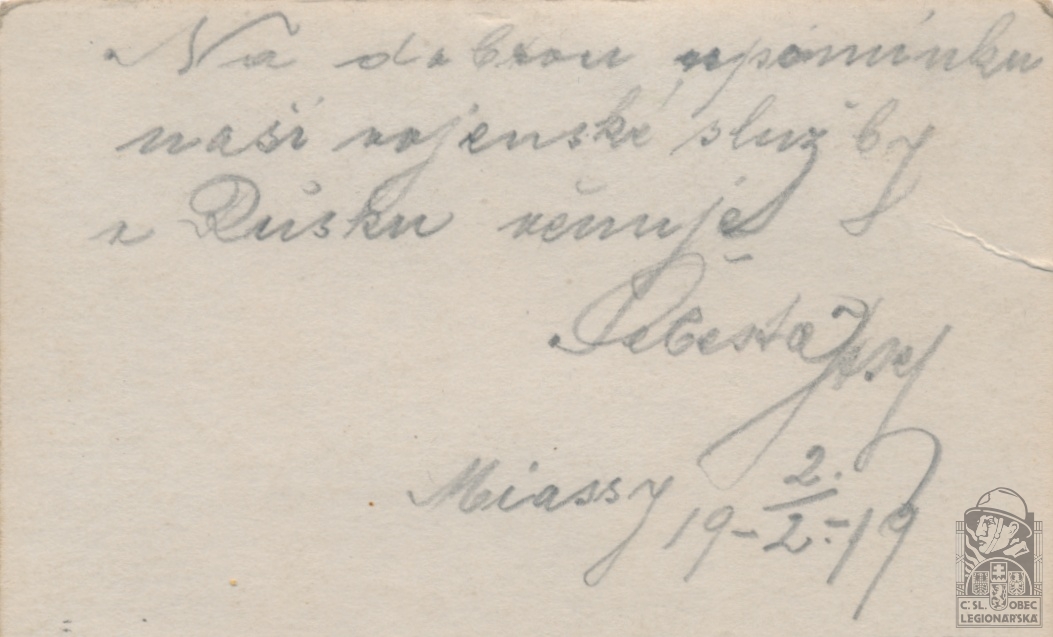 Na dobrou upomínku
naší vojenské služby
v Rusku věnuje
Šebesta Josef
Miassy 19-2./2.-19
Č.SL. OBEC
LEGIONÁŘSKÁ